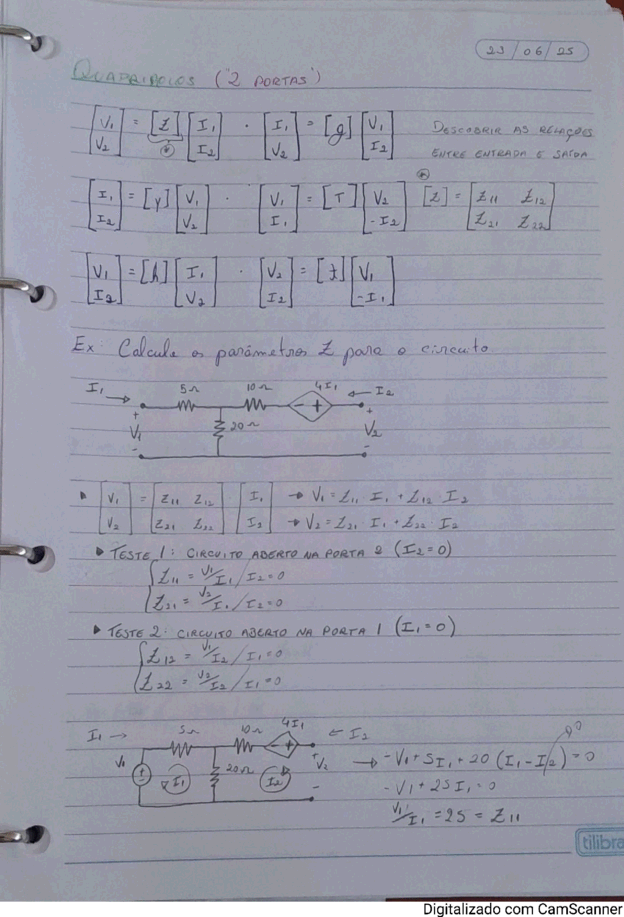 23/06/25
QUADRIPOLOS ("2 PORTAS")
[V1 V2] = [Z] [I1 I2] · [I1 V2] = [g] [V1 I2] DESCOBRIR AS RELAÇÕES
ENTRE ENTRADA E SAÍDA
[I1 I2] = [y] [V1 V2] · [V1 I1] = [T] [V2 -I2] [Z] = [Z11 Z12 Z21 Z22]
[V1 I2] = [h] [I1 V2] · [V2 I2] = [t] [V1 -I1]
Ex: Calcule os parâmetros Z para o circuito
I1 → 5Ω 10Ω 4I1 ← I2
- +
+ 20Ω +
V1 V2
- -
[V1 V2] = [Z11 Z12 Z21 Z22] · [I1 I2] → V1 = Z11 I1 + Z12 · I2
→ V2 = Z21 · I1 + Z22 · I2
TESTE 1: CIRCUITO ABERTO NA PORTA 2 (I2=0)
Z11 = V1/I1 / I2=0
Z21 = V2/I1 / I2=0
TESTE 2: CIRCUITO ABERTO NA PORTA 1 (I1=0)
Z12 = V1/I2 / I1=0
Z22 = V2/I2 / I1=0
I1 → 5Ω 10Ω 4I1 ← I2
- +
V1 I1 20Ω I2 +V2 -
→ -V1 + 5I1 + 20 (I1 - I2) = 0
-V1 + 25I1 = 0
V1/I1 = 25 = Z11
tilibra
Digitalizado com CamScanner